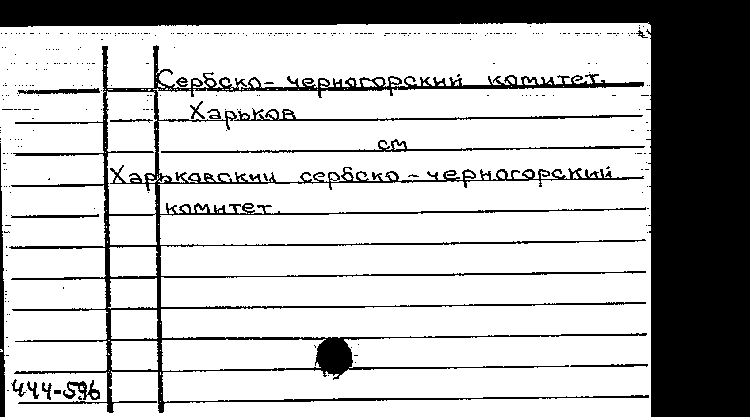 Сербско-черногорский комитет.
Харьков
см
Харьковский сербско-черногорский
комитет.
444-596